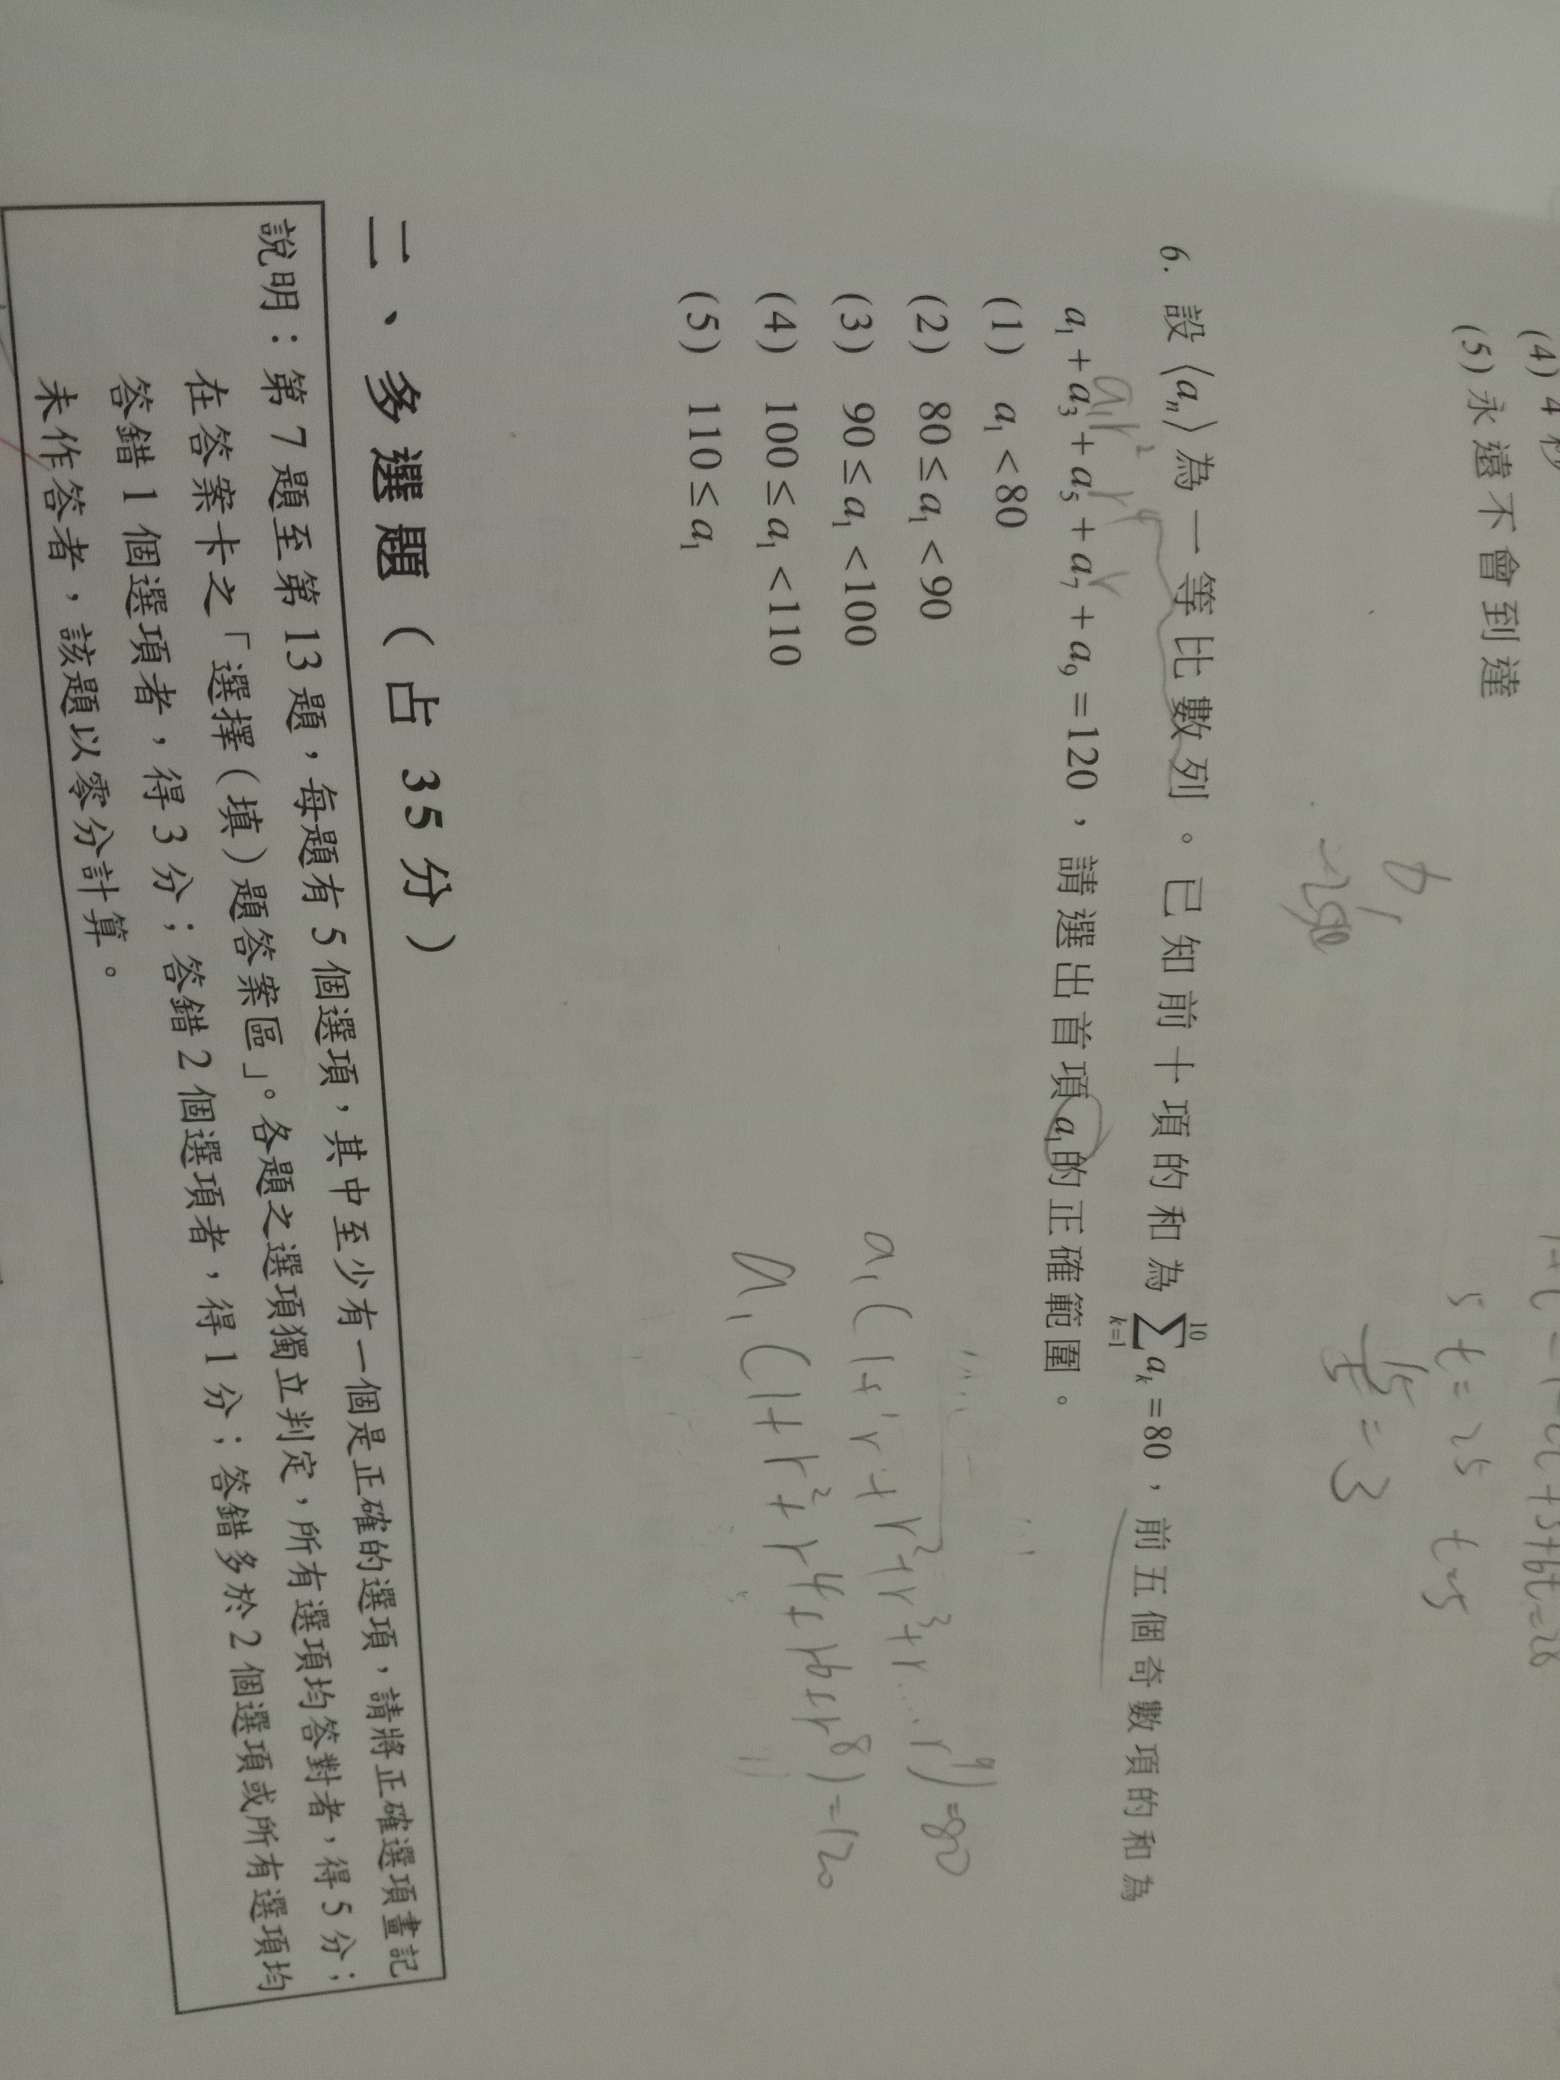 (4) 4秒
(5) 永遠不會到達
5t=25 t=5
=3
6. 設⟨aₙ⟩為一等比數列。已知前十項的和為 ∑_{k=1}^{10} aₖ=80，前五個奇數項的和為
a₁r² r⁴ r
a₁+a₃+a₅+a₇+a₉=120，請選出首項a₁的正確範圍。
(1) a₁<80
(2) 80≤a₁<90
(3) 90≤a₁<100
(4) 100≤a₁<110
(5) 110≤a₁
a₁(1+r+r²+r³+r....r⁹)=80
a₁(1+r²+r⁴+r⁶+r⁸)=120
二、多選題(占35分)
說明：第7題至第13題，每題有5個選項，其中至少有一個是正確的選項，請將正確選項畫記
在答案卡之「選擇(填)題答案區」。各題之選項獨立判定，所有選項均答對者，得5分；
答錯1個選項者，得3分；答錯2個選項者，得1分；答錯多於2個選項或所有選項均
未作答者，該題以零分計算。